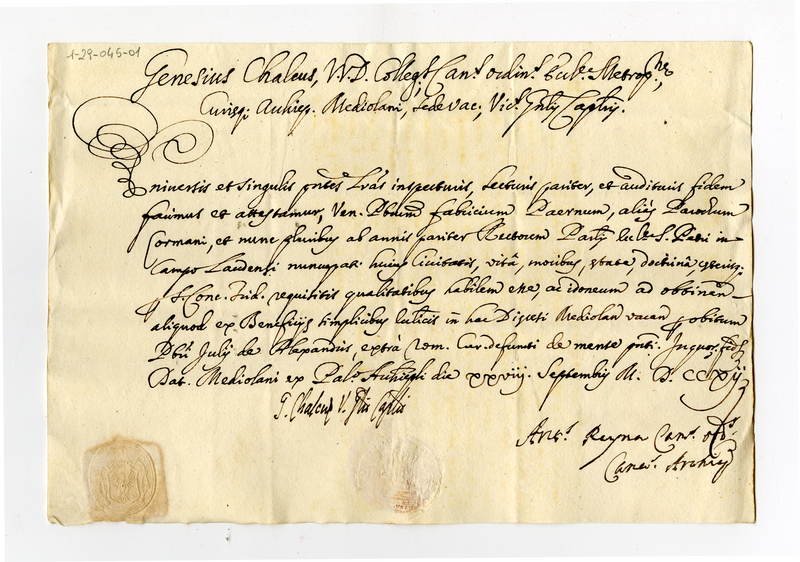 1-29-045-01
Genesius Chalcus, V.V.D. Colleg.t Can.s ordin.s Eccl.e Metrop.ne,
Curieq; Archiep. Mediolani, Sede vac; Vic.s Capli.
Universis et singulis pntes Lrãs inspecturis, Lecturis pariter, et audituris fidem
facimus et attestamur, Ven. Pbrum Fabricium Paernum, aliàs Parochum
Cormani, et nunc pluribus ab annis pariter Rectorem Parlis Eccle S. Petri in
Campo Laudensi nuncupati huius Civitatis, vitâ, moribus, etate, doctrinâ,
S. Conc. Trid. requisitis qualitatibus habilem esse, ac idoneum ad obtinen
aliquod ex Beneficijs simplicibus in hac Diocesi Mediolan vacan p obitum
Pbri Julij de extrà Rom. Cur. defuncti de mense pnti. In quor. fid.
Dat. Mediolani ex Pal.o Archiepli die xxviij. Septembris M.D.CCXij
G. Chalcus V. Glis Caplis
Ant.s Reyna Can.s ord.s
Canc.s Archiep